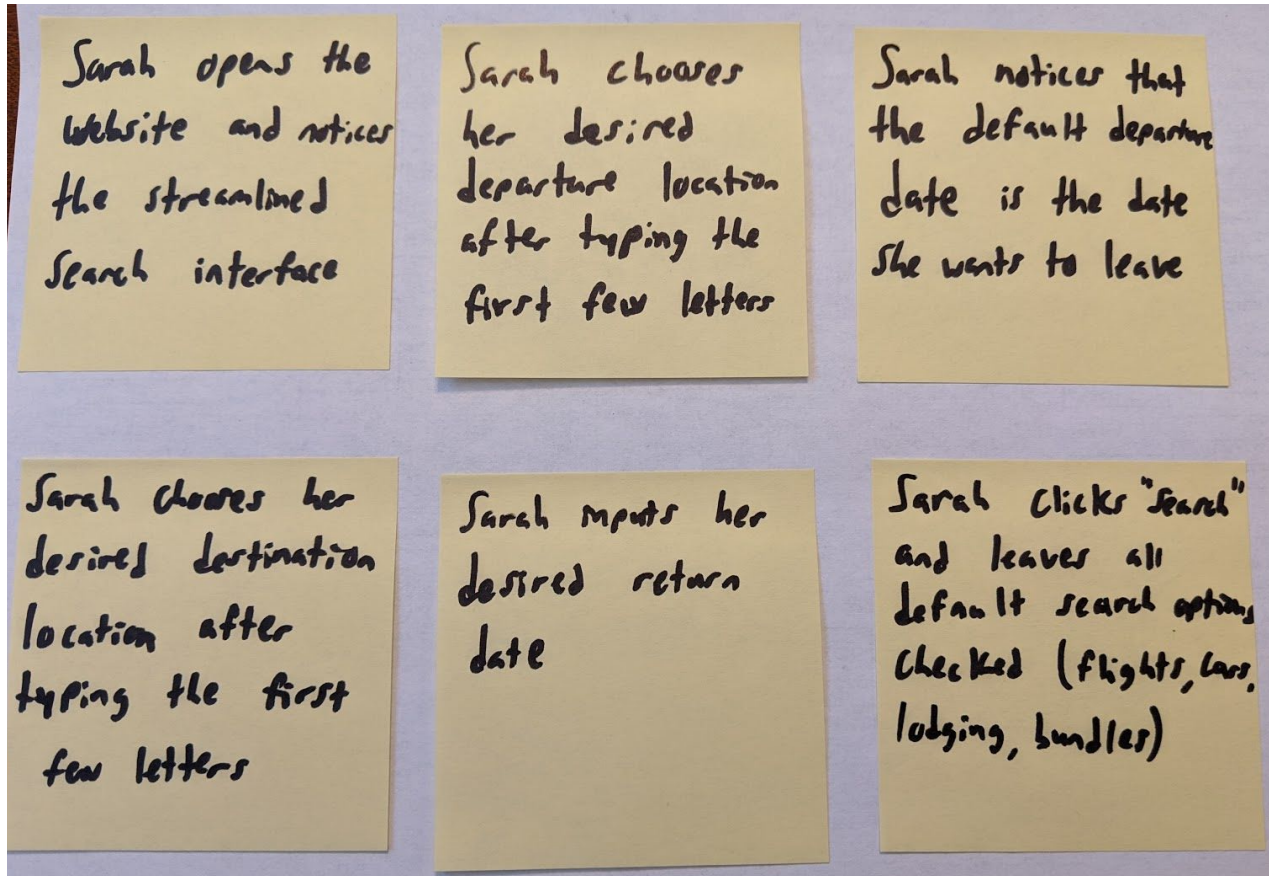 Sarah opens the
website and notices
the streamlined
search interface
Sarah chooses
her desired
departure location
after typing the
first few letters
Sarah notices that
the default departure
date is the date
she wants to leave
Sarah chooses her
desired destination
location after
typing the first
few letters
Sarah inputs her
desired return
date
Sarah clicks "search"
and leaves all
default search options
checked (flights, cars,
lodging, bundles)